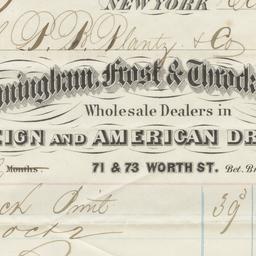 NEW YORK
P. B. Plantz & Co
ningham, Frost & Throck
Wholesale Dealers in
EIGN AND AMERICAN DR
Months. 71 & 73 WORTH ST. Bet. Br
ck Print 39
ocks